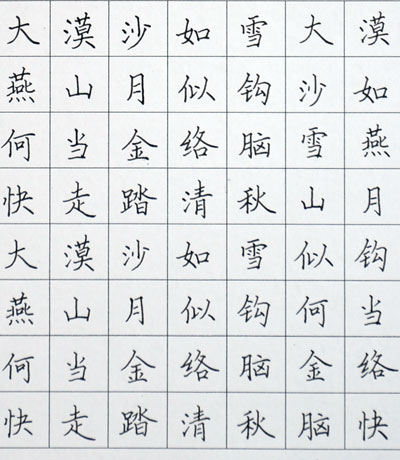 大漠沙如雪大漠
燕山月似钩沙如
何当金络脑雪燕
快走踏清秋山月
大漠沙如雪似钩
燕山月似钩何当
何当金络脑金络
快走踏清秋脑快